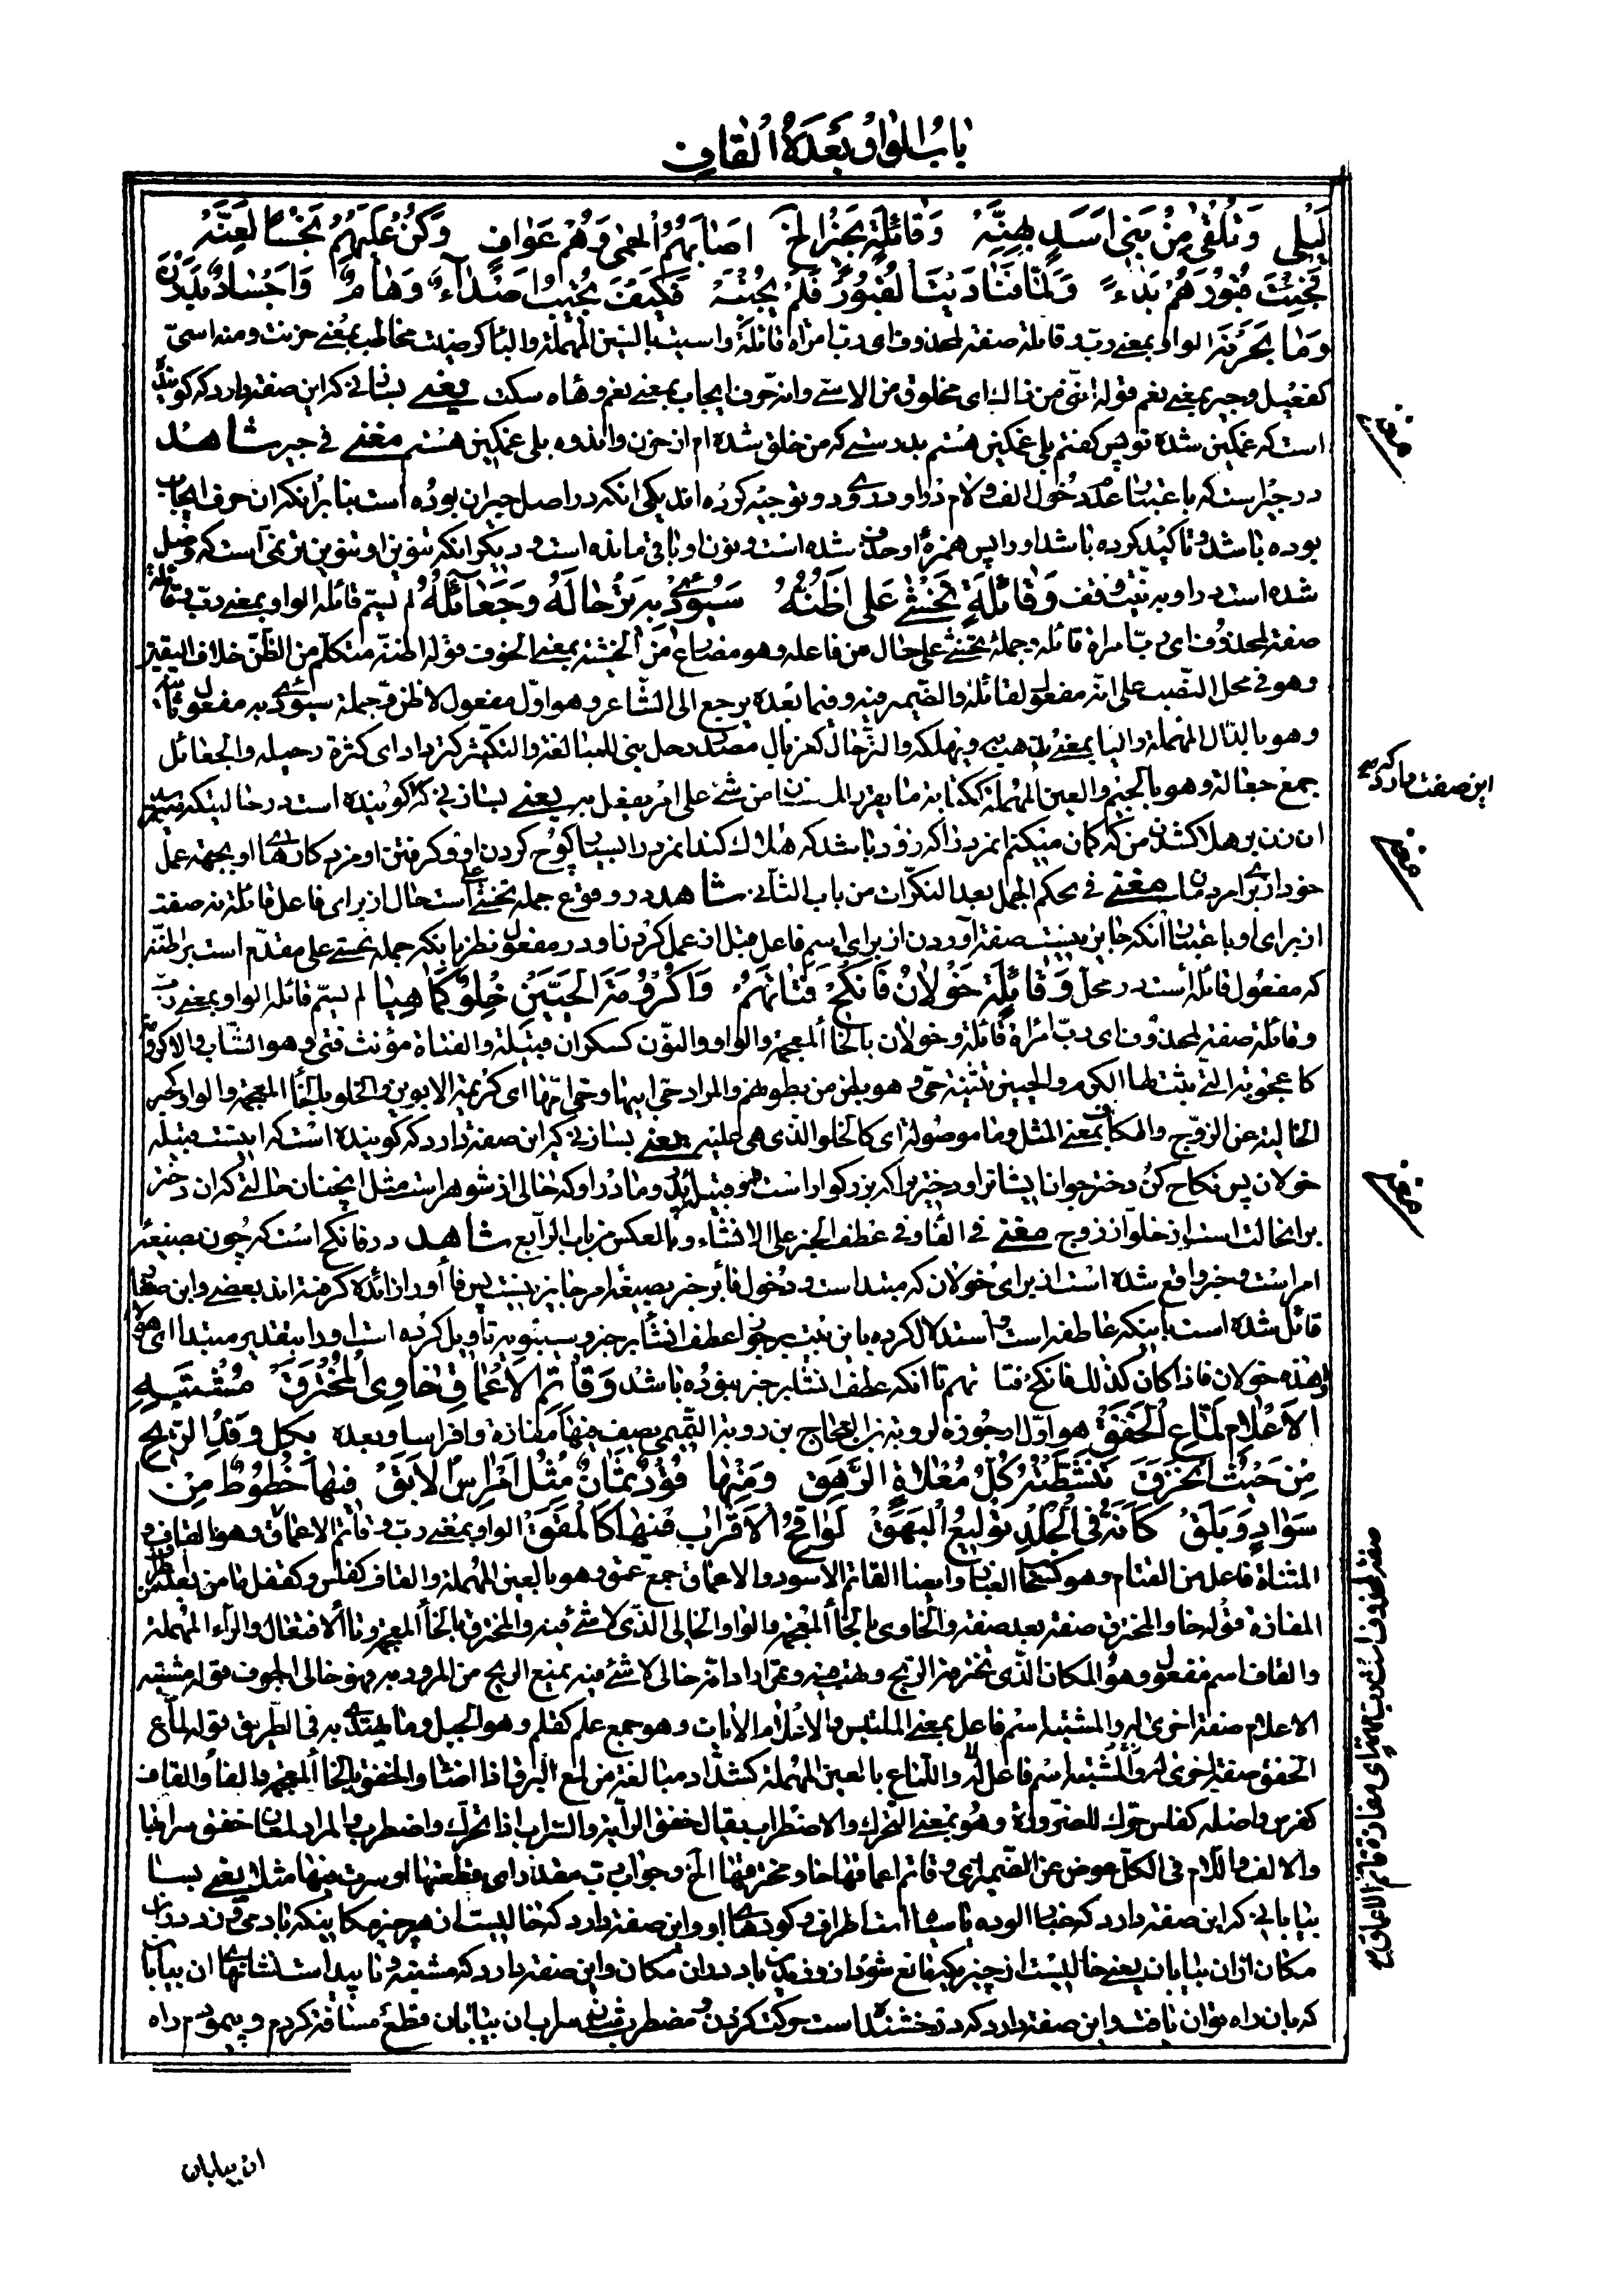 بابُ الواوُ بَعْدَهُ القاف
لَيْلى وَتُلْقى مِنْ بَنى اَسَدٍ بِهِنَّهْ وَقائلَةٍ بَجَزُا لخ اَصابَهُمُ الحِمى وَهُمْ عَوافٍ وَكُنَّ عَلَيْهِمُ نَحْساً لُعِنَّهْ
فَجِئْتَ قُبُورَهُمْ بَدْءاً وَلَمّا فَنادَيْتَ القُبُورَ فَلَمْ يُجِبْنَهْ فَكَيْفَ يُجيبُ اَصْداءٌ وَهامٌ وَاَجْسادٌ بَدَرْنَ
وَما نَخِرْنَهْ الواو بمعنى ربّ وقائلة صفة لمحذوف اى ربّ امراة قائلة واسيت بالسين المهملة والياء كرضيت مخاطب بمعنى حزنت ومنه اسىّ
كفعيل وجير بمعنى نعم قوله انّنى من ذاك اى مخلوق من الاسى وانّه حرف ايجاب بمعنى نعم وهاء سكت يعنى بسا زنى كه اين صفت دارد كه كوينده
است كه غمكين شده تو پس كفتم بلى غمكين هستم بدرستى كه من خلق شده ام از حزن واندوه بلى غمكين هستم مغنى فى جير شاهد
در جير است كه باعتبار عدم دخول الف ولام در او ودو توجيه كرده اند يكى انكه در اصل جير ان بوده است بنا بر انكه ان حرف ايجاب
بوده باشد وتاكيد كرده باشد او را پس همزه او حذف شده است ونون او باقى مانده است وديكر انكه تنوين او تنوين ترنم است كه وصل
شده است در او به نيّت وقف وَقائِلَةٍ تَخْشى عَلَىَّ اَظُنُّهُ سَيُودى بِهِ تَرْحالُهُ وَجَعائِلُهُ لم يسمّ قائله الواو بمعنى ربّ وقائلة
صفة لمحذوف اى ربّ امراة قائلة وجملة تخشى علىّ حال من فاعله وهو مضارع من الخشية بمعنى الخوف قوله اظنّه متكلّم من الظنّ خلاف اليقين
وهو فى محل النصب على انّه مفعول لقائلة والضمير فيه وفيما بعده يرجع الى الشاعر وهو اوّل مفعول لاظن وجملة سيودى به مفعول ثانيه
وهو بالدال المهملة والياء بمعنى يذهب به ويهلكه والترحال كفزبال مصدر رحل بنى للمبالغة والتكثير كترداد اى كثرة رحيله والجعائل
جمع جعالة وهو بالجيم والعين المهملة ككتابة ما يقرر من شئ على امر يفعل به يعنى بسا زنى كه كوينده است در حالتيكه ميترسد
ان زن بر هلاك شدن من كه كمان ميكنم انمرد را كه زود باشد كه هلاك كند انمرد را بسيار كوچ كردن او وكرفتن او مزد كارهاى او بجهة عمل
خود از براى مردمان مغنى فى حكم الجمل بعد النكرات من باب الثانى شاهد در وقوع جمله تخشى علىّ است حال از براى فاعل قائلة نه صفت
از براى او باعتبار انكه جايز نيست صفت آوردن از براى اسم فاعل مثل از عمل كردن او در مفعول نظر بانكه جمله تخشى علىّ مقدّم است بر اظنّه
كه مفعول قائله است در محل وَقائِلَةٍ خَوْلانُ فَانْكِحْ فَتاتَهُمْ وَاُكْرُومَةُ الحَيَّيْنِ خِلْوٌ كَما هِيا لم يسمّ قائله الواو بمعنى ربّ
وقائلة صفة لمحذوف اى ربّ امراة قائلة وخولان بالخاء المعجمة والواو والنون كسكران قبيلة والفتاة مؤنث فتى وهو الشاب والاكرومة
كاعجوبة التى يثبت لها الكرم والحيين تثنية حىّ وهو بطن من بطونهم والمراد حىّ ابيها وحىّ امّها اى كريمة الابوين والخلو بالخاء المعجمة والواو كحبر
الخالية عن الزوج والكاف بمعنى المثل وما موصولة اى كالخلو الذى هى عليه يعنى بسا زنى كه اين صفت دارد كه كوينده است كه اينست قبيله
خولان پس نكاح كن دختر جوان ايشانرا ودختريرا كه بزركوار است دو قبيله پدر ومادر او كه خالى از شوهر است مثل انچنان حالتى كه ان دختر
بر انحالت است از خلو از زوج مغنى فى الفاء وفى عطف الخبر على الانشاء وبالعكس من باب الرابع شاهد در فانكح است كه چون بصيغه
امر است وخبر واقع شده است از براى خولان كه مبتدا است ودخول فا بر خبر بصيغه امر جايز نيست پس فا او را زائده كرفته اند بعضى وابن صفار
قائل شده است باينكه عاطفه است واستدلال كرده باين بيت بر جواز عطف انشا بر خبر وسيبويه تأويل كرده است او را بتقدير مبتدا اى هؤلاء
او هذه خولان فاذا كان كذلك فانكح فتاتهم تا انكه عطف انشا بر خبر نبوده باشد وَقاتِمِ الاَعْماقِ خاوِى المُخْتَرَقْ مُشْتَبِهِ
الاَعْلامِ لَمّاعِ الخَفَقْ هو اوّل ارجوزة لروبة بن العجاج بن روبة التميمى يصف فيها مفازة وافراسا وبعده يَكِلُّ وَفْدُ الرّيحِ
مِنْ حَيْثُ انْخَرَقْ تَنَشَّطَتْهُ كُلُّ مِغْلاةِ الوَهَقْ وَمِنْها قُودٌ ثَمانٌ مِثْلُ اَمْراسِ الاَبَقْ فيها خُطُوطٌ مِنْ
سَوادٍ وَبَلَقْ كَاَنَّهُ فِى الجِلْدِ تَوْليعُ البَهَقْ لَواحِقُ الاَقْرابِ فيها كَالمَقَقْ الواو بمعنى ربّ وقاتم الاعماق وهو بالقاف و
المثناة فاعل من القتام وهو كسحاب الغبار وايضا القاتم الاسود والاعماق جمع عمق وهو بالعين المهملة والقاف كفلس وكقفل ما من بعد اطراف
المفازة قوله خاو والمخترق صفة بعد صفة والخاوى بالخاء المعجمة والواو الخالى الذى لا شئ فيه والمخترق بالخاء المعجمة وتاء الافتعال والراء المهملة
والقاف اسم مفعول وهو المكان الذى تخترقه الريح وتهب فيه وهو اراد انه خالى لا شئ فيه يمنع الريح من المرور به وهو خالى الجوف قوله مشتبه
الاعلام صفة اخرى له والمشتبه اسم فاعل بمعنى الملتبس والاعلام الايات وهو جمع علم كقلم وهو الجبل وما يهتدى به فى الطريق قوله لمّاع
الخفق صفة اخرى له والمشتبه اسم فاعل له واللماع بالعين المهملة كشداد مبالغة من لمع البرق اذا اضاء والخفق بالخاء المعجمة والفاء والقاف
كفرس واصله كفلس حرّك للضرورة وهو بمعنى التحرك والاضطراب يقال خفق الراية والسراب اذا تحرك واضطرب والمراد لمعان خفق سرابها
والالف واللام فى الكلّ عوض عن الضمير اى وقاتم اعماقها خاو مخترقها الخ وجواب ربّ مقدّر اى قطعتها او سرت فيها مثلا يعنى بسا
بيابانى كه اين صفت دارد كه غبار الوده يا سياه است اطراف وكودهاى او واين صفت دارد كه خاليست از هر چيز مكانيكه باد مى وزد در ان
مكان از ان بيابان يعنى خاليست از چيزيكه مانع شود از وزيدن باد در ان مكان واين صفت دارد كه مشتبه وناپيداست نشانهاى ان بيابان
كه بان راه توان يافت واين صفت دارد كه درخشنده است حركت كردن ومضطرب شدن سراب ان بيابان قطع مسافت كردم وپيمودم راه
مغنى
اين صفت دارد كه
مغنى
مغنى
صفة لمحذوف اى ربّ مفازة قاتم الاعماق
ان بيابان